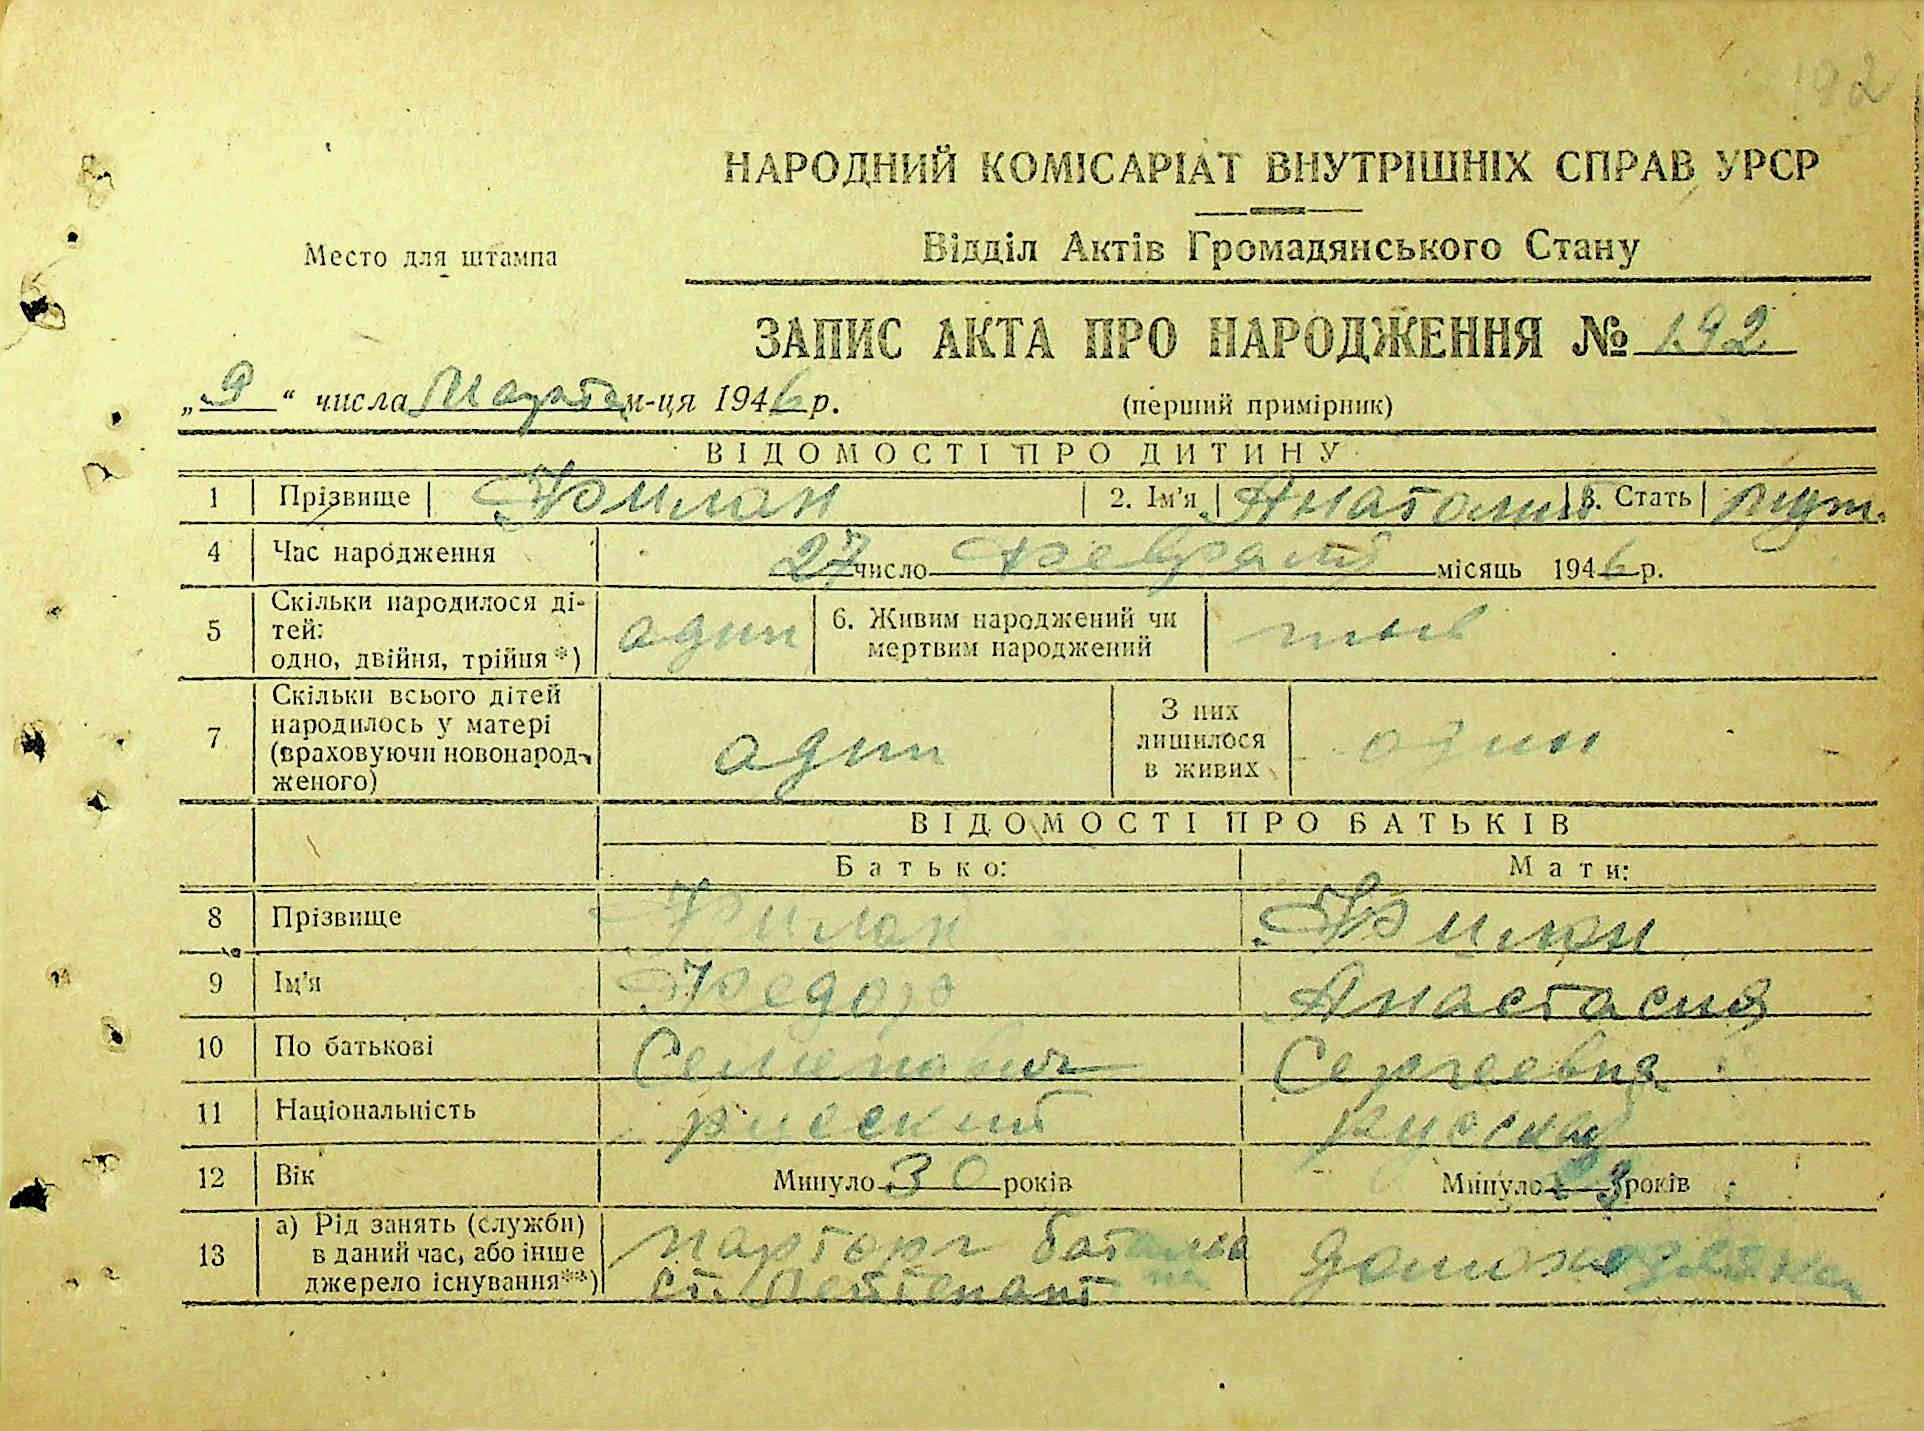 192
НАРОДНИЙ КОМІСАРІАТ ВНУТРІШНІХ СПРАВ УРСР
Місто для штампа
Відділ Актів Громадянського Стану
ЗАПИС АКТА ПРО НАРОДЖЕННЯ № 192
„9“ числа Марта м-ця 1946 р.
(перший примірник)
ВІДОМОСТІ ПРО ДИТИНУ
1 Прізвище Филан 2. Ім'я Анатолий 3. Стать муж.
4 Час народження 27 число февраля місяць 1946 р.
5 Скільки народилося ді-
тей:
одно, двійня, трійня*) один 6. Живим народжений чи
мертвим народжений
7 Скільки всього дітей
народилось у матері
(враховуючи новонарод-
женого) один З них
лишилося
в живих один
ВІДОМОСТІ ПРО БАТЬКІВ
Батько: Мати:
8 Прізвище Филан Филан
9 Ім'я Федор Анастасия
10 По батькові Семенович Сергеевна
11 Національність русский русская
12 Вік Минуло 30 років Минуло 23 років
13 а) Рід занять (служби)
в даний час, або інше
джерело існування**) парторг батальо
на
ст. Лейтенант домохозяйка